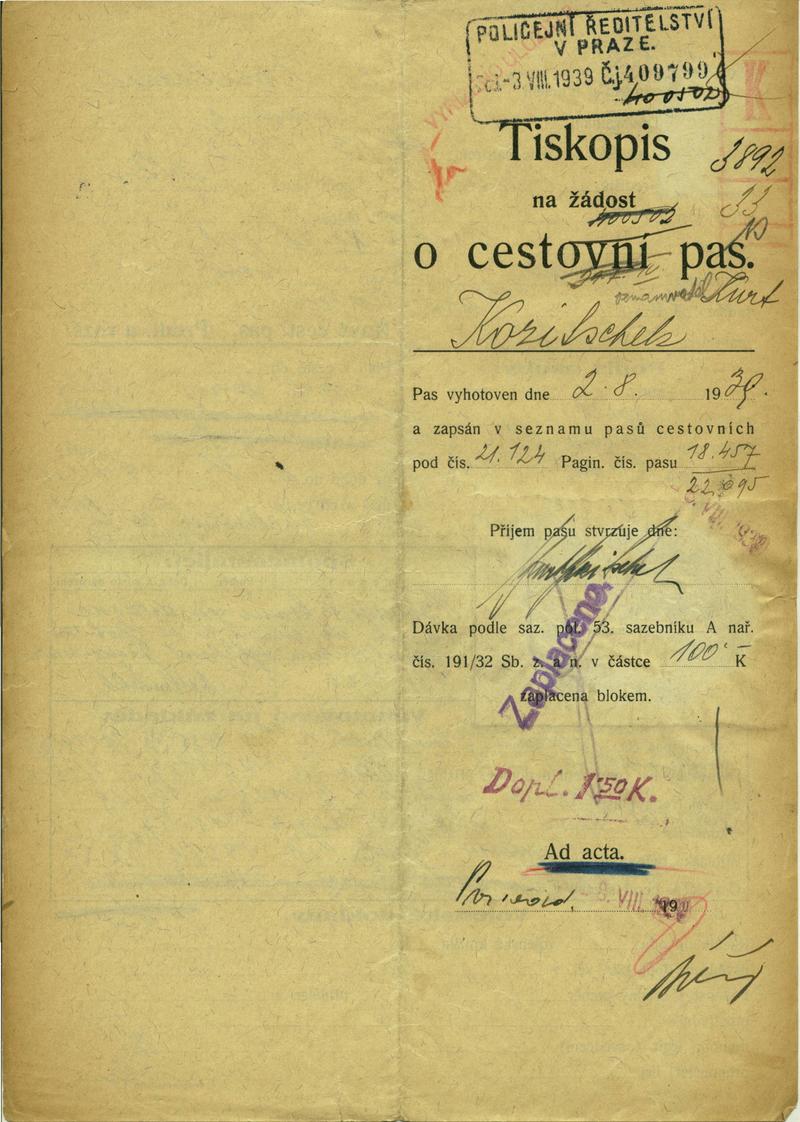 POLICEJNÍ ŘEDITELSTVÍ
V PRAZE.
-3.VIII.1939 Č.j. 409799
400502
Tiskopis
3892
na žádost
33
400502
o cestovní pas.
Kurt
Kozitschek
Pas vyhotoven dne 2. 8. 1939.
a zapsán v seznamu pasů cestovních
pod čís. 21.124 Pagin. čís. pasu 18.457
22.095
Příjem pasu stvrzuje dne:
Dávka podle saz. pol. 53. sazebníku A nař.
čís. 191/32 Sb. z. a n. v částce 100·- K
zaplacena blokem.
Zaplaceno.
Dopl. 1·50 K.
Ad acta.
-8. VIII. 19